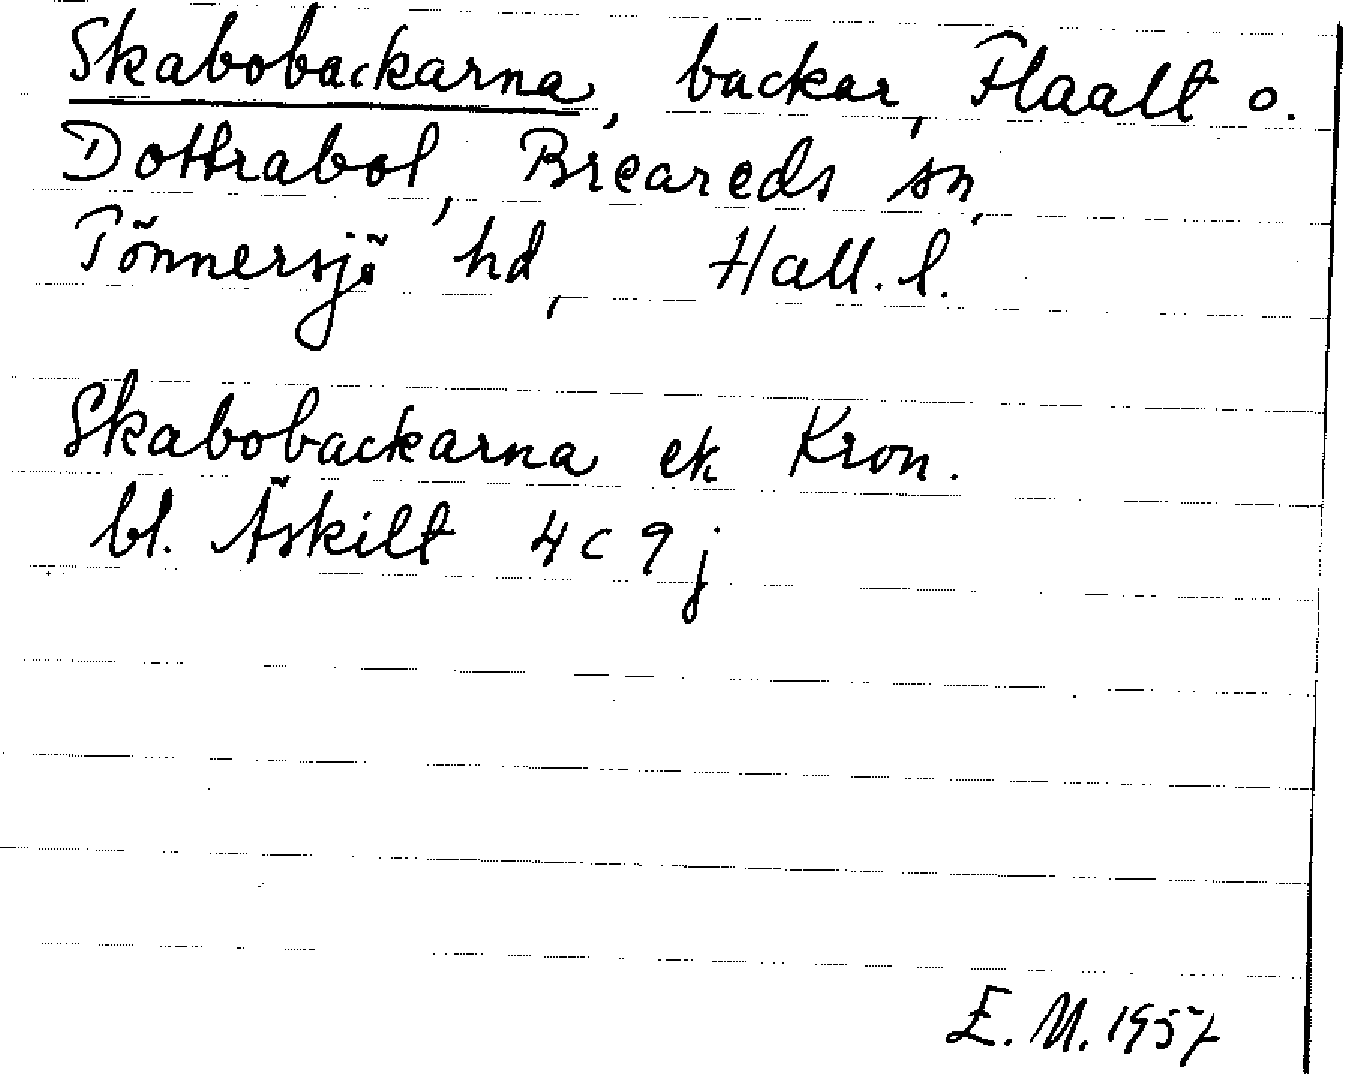 Skabobackarna, backar, Flaalt o.
Dottrabol, Breareds sn,
Tönnersjö hd, Hall. l.
Skabobackarna ek Kron.
bl. Äskilt 4 c 9 j
E. M. 1957